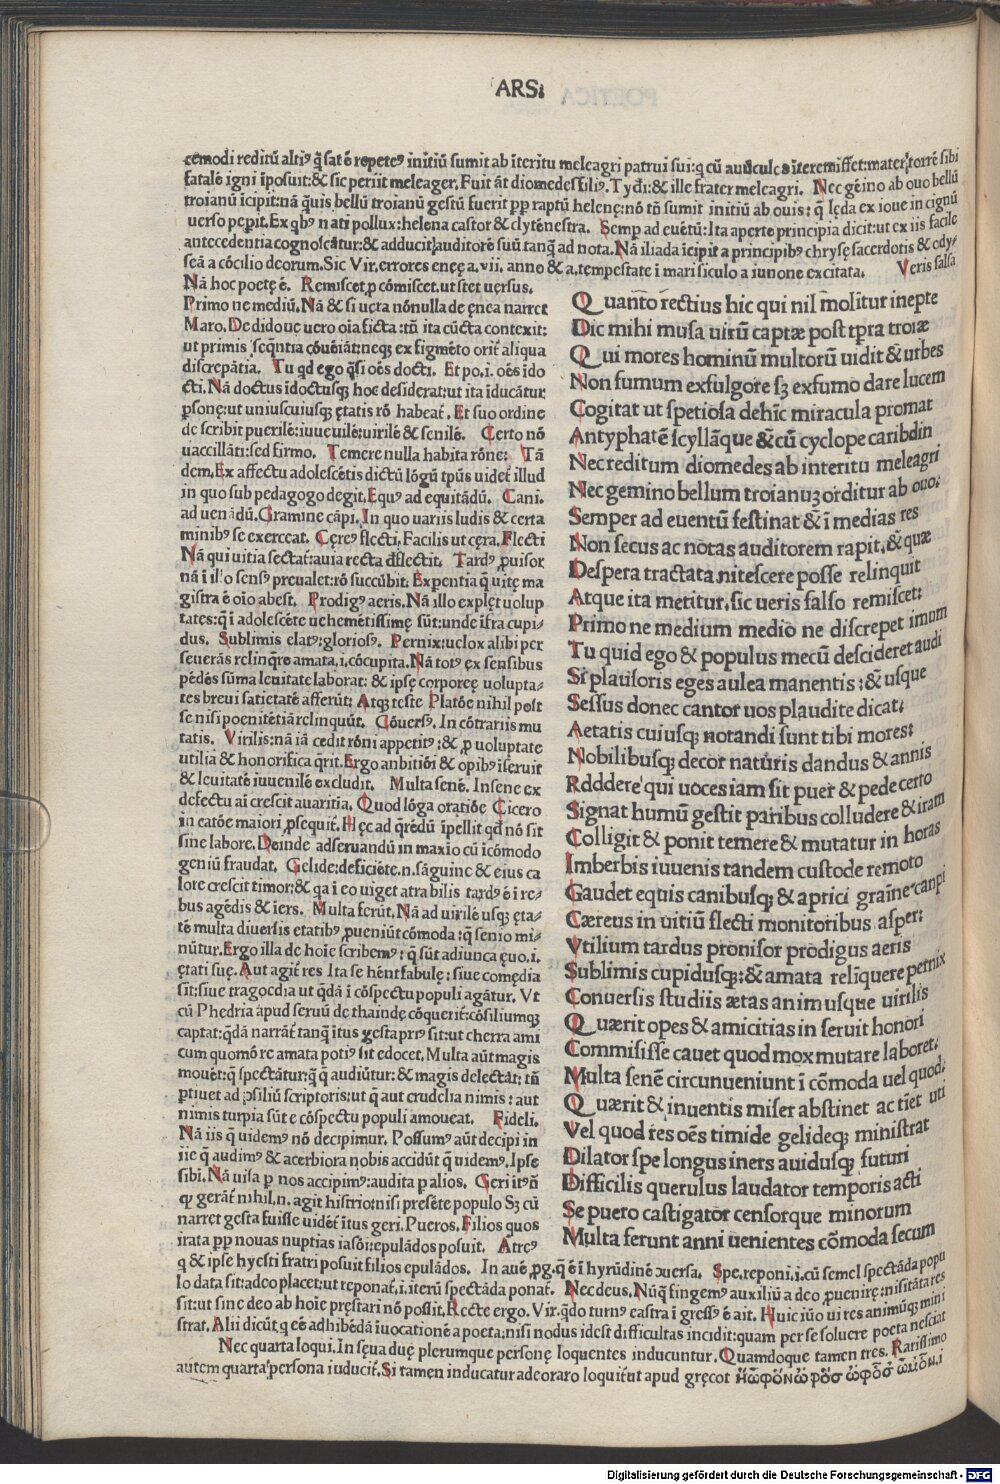 ARS.
cemodi reditū altiꝰ q̄ sat ē repeteꝰ initiū sumit ab īteritu meleagri patrui sui: q cū auūculos īteremisset: mater torrē sibi
fatalē igni īposuit: & sic periit meleager. Fuit āt diomedes filiꝰ. Tydi: & ille frater meleagri. Nec gēino ab ouo bellū
troianū icipit: nā q̄uis bellū troianū gestū fuerit pp raptū helenę: nō tn̄ sumit initiū ab ouis: q̄ lęda ex ioue in cignū
uerso pepit. Ex qbꝰ nati pollux: helena castor & clytēnestra. Semp ad euētū: Ita aperte principia dicit: ut ex iis facile
antecedentia cognoscātur: & adducit auditorē suū tanq̄ ad nota. Nā iliada īcipit a principibꝰ chrysę sacerdotis & ody-
seā a cōcilio deorum. Sic Vir. errores enęę a. vii. anno & a. tempestate ī mari siculo a iunone excitata. Veris falsa
Nā hoc poetę ē. Remiscet. p cōmiscet. ut stet uersus.
Primo ne mediū. Nā & si uera nōnulla de ęnea narret
Maro. De dido uę uero oīa ficta: tn̄ ita cūcta contexit:
ut primis seq̄ntia cōueīāt: neq; ex figmēto orit̄ aliqua
discrepātia. Tu qd ego q̄si oēs docti. Et po. i. oēs īdo
cti. Nā doctus īdoctusq; hoc desiderat: ut ita īducātur
psonę: ut uniuscuiusq; ętatis rō habeat̄. Et suo ordine
describit puerilē: iuueuilē: uirilē & senilē. Certo nō
uaccillāti: sed firmo. Temere nulla habita rōne: Tā
dem. Ex affectu adolescētis dictū lōgū tp̄us uidet̄ illud
in quo sub pedagogo degit. Equꝰ ad equitādū. Cani.
ad uenādū. Gramine cāpi. In quo uariis ludis & certa
minibꝰ se exerceat. Cęreꝰ flecti. Facilis ut cęra. Flecti
Nā qui uitia sectat̄: auia recta dflectit. Tardꝰ puisor
nā ī illo sensꝰ preualet: rō succūbit. Expentia q̄ uitę ma
gistra ē oīo abest. Prodigꝰ aeris. Nā illo explęt uolup
tates: q̄ ī adolescēte uehemētissimę sūt: unde īfra cupi-
dus. Sublimis elatꝰ: gloriosꝰ. Pernix: uelox alibi per
seuerās relinq̄re amata. i. cōcupita. Nā totꝰ ex sensibus
pēdēs sūma leuitate laborat: & ipsę corporeę uolupta-
tes breui satietatē afferūt: Atq; teste Platōe nihil post
se nisi poenitētiā relinquūt. Cōuersꝰ. In cōtrariis mu
tatis. Virilis: nā iā cedit rōni appetitꝰ: & p uoluptate
utilia & honorifica q̄rit. Ergo anbitiōi & opibꝰ īseruit
& leuitatē iuuenilē excludit. Multa senē. In sene ex
defectu aī crescit auaritia. Quod lōga oratiōe Cicero
in catōe maiori psequit̄. Hęc ad q̄rēdū īpellit qd nō sit
sine labore. Deinde adseruandū in maxīo cū īcōmodo
geniū fraudat. Gelide: deficiēte. n. sāguine & eius ca
lore crescit timor: & qa ī eo uiget atra bilis tardꝰ ē ī re-
bus agēdis & iers. Multa ferūt. Nā ad uirilē usq; ęta-
tē multa diuersis etatibꝰ pueniūt cōmoda: q̄ senio mi-
nūtur. Ergo illa de hoīe scribemꝰ: q̄ sūt adiuncta ęuo. i.
ętati suę. Aut agit̄ res Ita se hēnt fabulę: siue comędia
sit: siue tragoedia ut qdā ī cōspectu populi agātur. Vt
cū Phedria apud seruū de thaindę cōquerit̄: cōsiliumq;
captat: qdā narrāt̄ tanq̄ ītus gesta priꝰ sit: ut cherra ami
cum quomō re amata potiꝰ sit edocet. Multa aūt magis
mouēt: q̄ spectātur: q̄ q̄ audiūtur: & magis delectāt: tn̄
ptiuet ad psiliū scriptoris: ut q̄ aut crudelia nimis: aut
nimis turpia sūt e cōspectu populi amoueat. Fideli.
Nā iis q̄ uidemꝰ nō decipimur. Possumꝰ aūt decipi in
iie q̄ audimꝰ & acerbiora nobis accidūt q̄ uidemꝰ. Ipse
sibi. Nā uisa p nos accipimꝰ: audita p alios. Geri itꝰn̄
qꝫ gerāt̄ nihil. n. agit histrio: nisi presēte populo Sꝫ cū
narret gesta fuisse uidēt̄ ītus geri. Pueros. Filios quos
irata pp nouas nuptias iasōi: epulādos posuit. Atreꝰ
q & ipse hyesti fratri posuit filios epulādos. In auē pg. q̄ ē ī hyrūdinē ↄuersa. Spe. reponi. i. cū semel spectāda popu
lo data sit: adeo placet: ut reponat̄. i. iterū spectāda ponat̄. Nec deus. Nūq̄ fingemꝰ auxiliū a deo puenirę: nisi tāta res
sit: ut sine deo ab hoīe pręstari nō possit. Recte ergo. Vir. qdo turnꝰ castra ī gressꝰ ē ait. Huic īuo ui res animūq; mini
strat. Alii dicūt q eē adhibēdā īuocationē a poeta: nisi nodus idest difficultas incidit: quam per se soluere poeta nesciat
Nec quarta loqui. In sęua duę plerumque personę loquentes inducuntur. Quamdoque tamen tres. Rarissimo
autem quarta persona iuducit̄. Si tamen inducatur adcoraro loquit̄ ut apud gręcot
Quanto rectius hic qui nil molitur inepte
Dic mihi musa uirū captæ post tpra troiæ
Qui mores hominū multorū uidit & urbes
Non fumum exfulgore sꝫ exfumo dare lucem
Cogitat ut spetiosa dehīc miracula promat
Antyphatē scyllāque & cū cyclope caribdin
Nec reditum diomedes ab interitu meleagri
Nec gemino bellum troianuꝫ orditur ab ouo:
Semper ad euentū festinat & ī medias res
Non secus ac notas auditorem rapit, & quæ
Despera tractata nitescere posse relinquit
Atque ita metitur, sic ueris falso remiscet:
Primo ne medium medio ne discrepet imum
Tu quid ego & populus mecū descideret audi
Si plausoris eges aulea manentis: & usque
Sessus donec cantor uos plaudite dicat:
Aetatis cuiusq; notandi sunt tibi mores:
Nobilibusq; decor naturis dandus & annis
Rdddere qui uoces iam sit puer & pede certo
Signat humū gestit paribus colludere & iram
Colligit & ponit temere & mutatur in horas
Imberbis iuuenis tandem custode remoto
Gaudet equis canibusq; & aprici graīne canpi
Cæreus in uitiū flecti monitoribus asper:
Vtilium tardus prouisor prodigus aeris
Sublimis cupidusq; & amata relīquere pernix
Conuersis studiis ætas animusque uirilis
Quærit opes & amicitias in seruit honori
Commisisse cauet quod mox mutare laboret:
Multa senē circunueniunt ī cōmoda uel quod:
Quærit & inuentis miser abstinet ac tīet uti
Vel quod res oēs timide gelideq; ministrat
Dilator spe longus iners auidusq; futuri
Difficilis querulus laudator temporis acti
Se puero castigator censorque minorum
Multa ferunt anni uenientes cōmoda secum
Digitalisierung gefördert durch die Deutsche Forschungsgemeinschaft - DFG